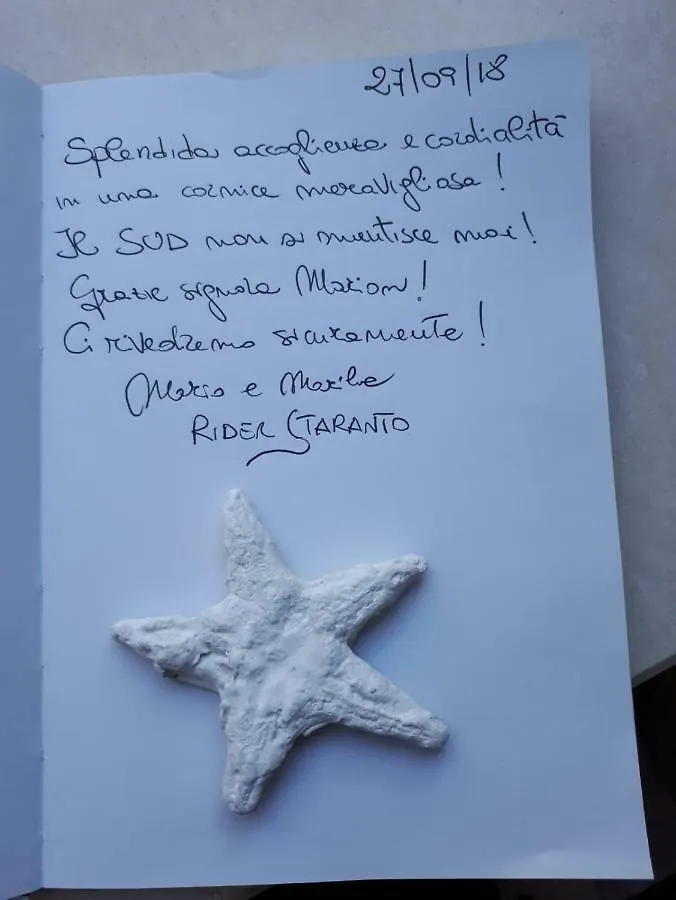 27/09/18
Splendida accoglienza e cordialità
in una cornice meravigliosa!
Il SUD non si smentisce mai!
Grazie signora Marion!
Ci rivedremo sicuramente!
Mario e
RIDER TARANTO